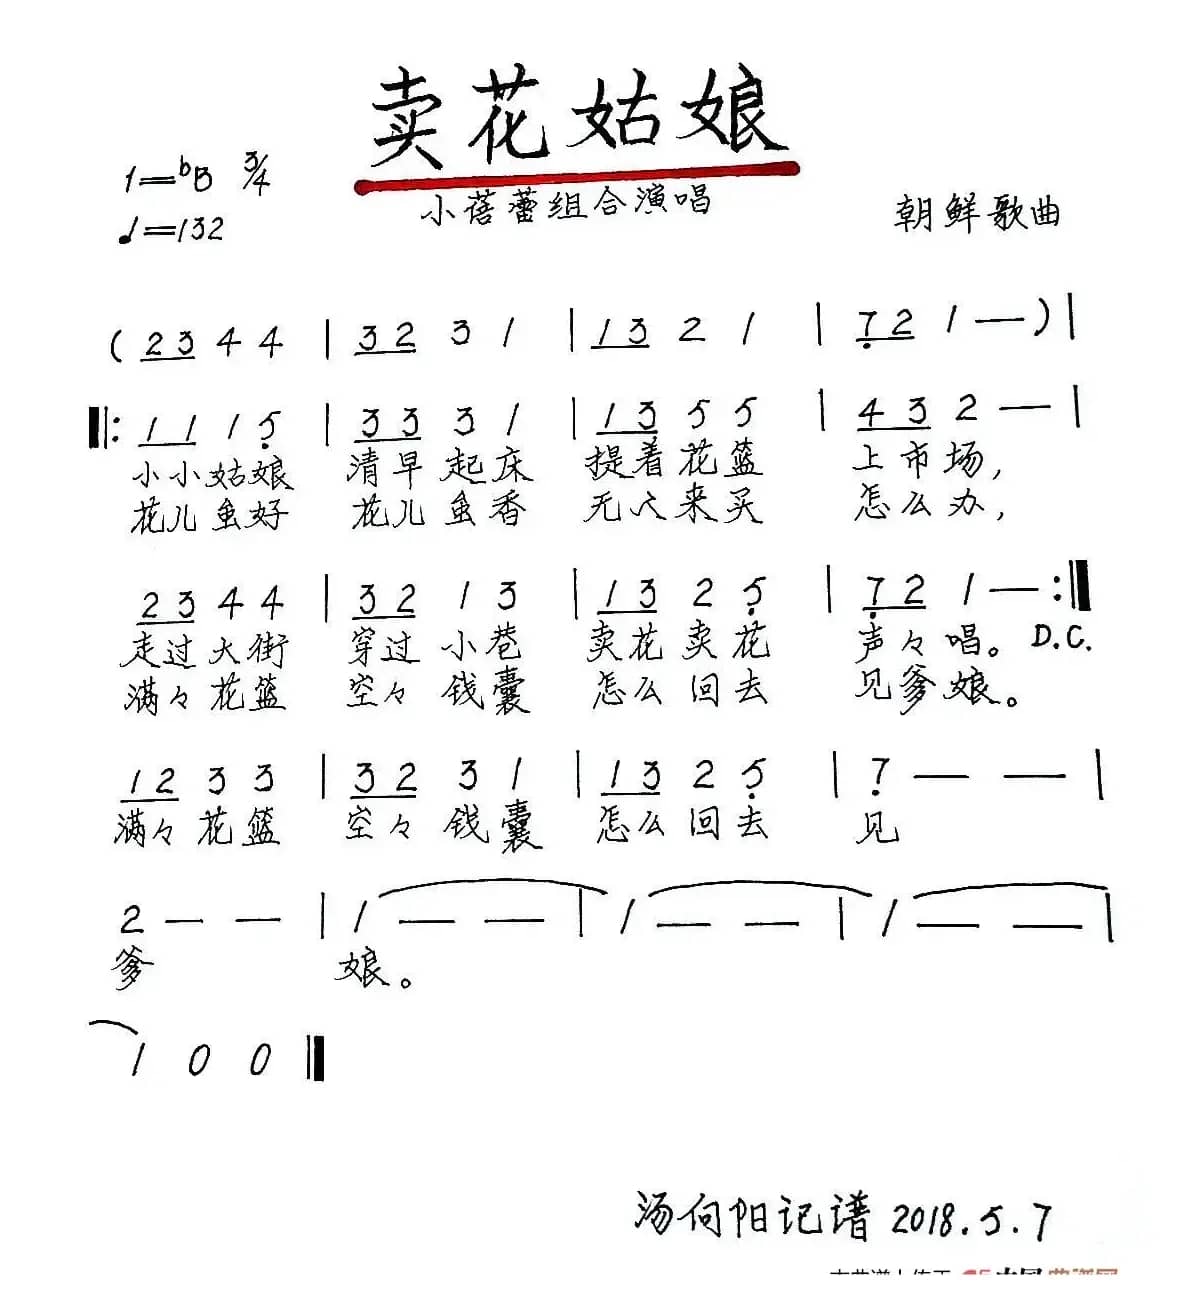 卖花姑娘
1=♭B 3/4
小蓓蕾组合演唱
♩=132
朝鲜歌曲
( 23 4 4 | 32 3 1 | 13 2 1 | 72 1 — ) |
‖: 11 1 5 | 33 3 1 | 13 5 5 | 43 2 — |
小小姑娘 清早起床 提着花篮 上市场,
花儿虽好 花儿虽香 无人来买 怎么办,
23 4 4 | 32 1 3 | 13 2 5 | 72 1 — :‖
走过大街 穿过小巷 卖花卖花 声々唱。 D.C.
满々花篮 空々钱囊 怎么回去 见爹娘。
12 3 3 | 32 3 1 | 13 2 5 | 7 — — |
满々花篮 空々钱囊 怎么回去 见
2 — — | 1 — — | 1 — — | 1 — — |
爹 娘。
1 0 0 ‖
汤向阳记谱 2018.5.7